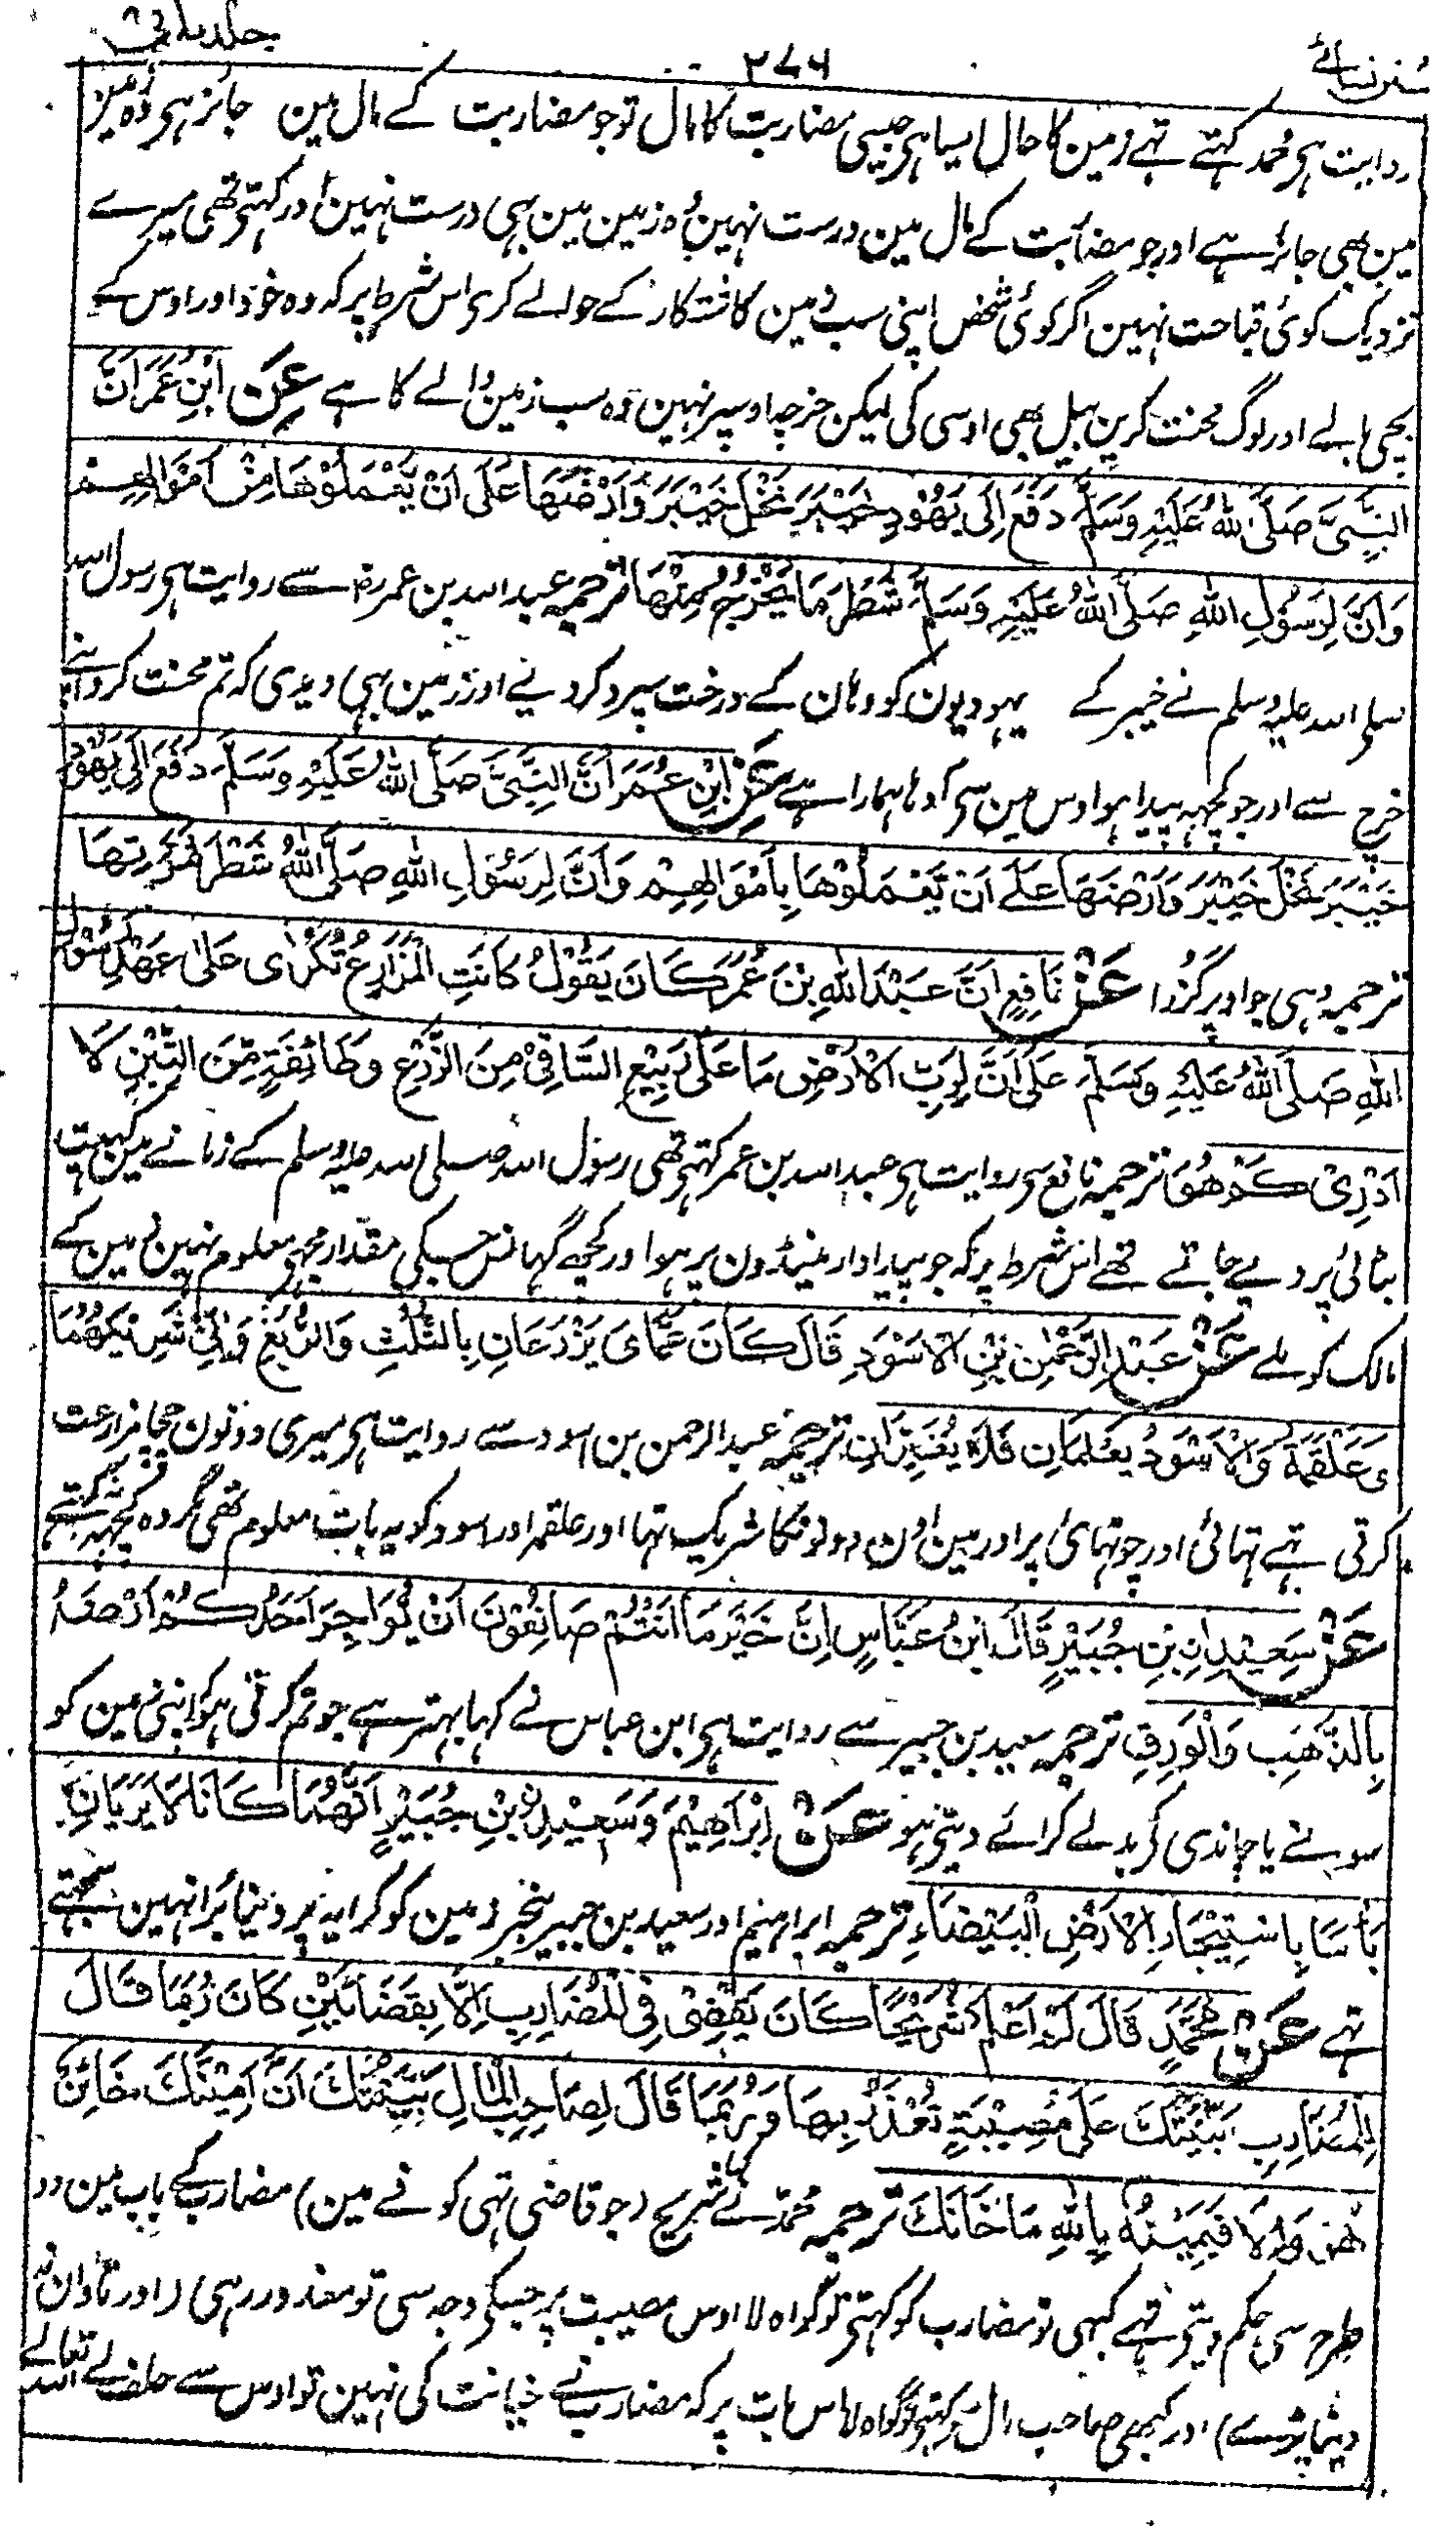 سنن نسائے
۲۷۶
جلد ثانی
روایت ہی محمد کہتے تہے زمین کا حال ایسا ہی جیسی مضاربت کا مال تو جو مضاربت کے مال مین جائز ہی وہ زمین
مین بھی جائز ہے اور جو مضاربت کے مال مین درست نہین وہ زمین مین بہی درست نہین اور کہتی تھی میرے
نزدیک کوئی قباحت نہین اگر کوئی شخص اپنی سب زمین کاشتکار کے حوالے کری اس شرط پر کہ وہ خود اور اوس کے
بچی بالے اور لوگ محنت کرین بیل بھی اوسی کی لیکن خرچہ اوسپر نہین وہ سب زمین والے کا ہے عَنِ ابْنِ عُمَرَ اَنَّ
النَّبِیَّ صَلَّی اللّٰهُ عَلَیْهِ وَسَلَّمَ دَفَعَ اِلَی یَهُوْدِ خَیْبَرَ نَخْلَ خَیْبَرَ وَاَرْضَهَا عَلَی اَنْ یَّعْمَلُوْهَا مِنْ اَمْوَالِهِمْ
وَاَنَّ لِرَسُوْلِ اللّٰهِ صَلَّی اللّٰهُ عَلَیْهِ وَسَلَّمَ شَطْرَ مَا یَخْرُجُ مِنْهَا ترجمہ عبد اللہ بن عمر رضہ سے روایت ہی رسول اللہ
صلی اللہ علیہ وسلم نے خیبر کے یہودیون کو وہان کے درخت سپرد کر دیئے اور زمین بہی دیدی کہ تم محنت کرو اپنے
خرچ سے اور جو کچہہ پیدا ہو اوس مین سی آدہا ہمارا ہے عَنِ ابْنِ عُمَرَ اَنَّ النَّبِیَّ صَلَّی اللّٰهُ عَلَیْهِ وَسَلَّمَ دَفَعَ اِلَی یَهُوْدِ
خَیْبَرَ نَخْلَ خَیْبَرَ وَاَرْضَهَا عَلَے اَنْ یَّعْمَلُوْهَا بِاَمْوَالِهِمْ وَاَنَّ لِرَسُوْلِ اللّٰهِ صَلَّی اللّٰهُ شَطْرَ ثَمَرَتِهَا
ترجمہ وہی جو اوپر گزرا عَنْ نَافِعٍ اَنَّ عَبْدَ اللّٰهِ بْنَ عُمَرَ کَانَ یَقُوْلُ کَانَتِ الْمَزَارِعُ تُکْرٰی عَلٰی عَهْدِ رَسُوْلِ
اللّٰهِ صَلَّی اللّٰهُ عَلَیْهِ وَسَلَّمَ عَلَی اَنَّ لِرَبِّ الْاَرْضِ مَا عَلَی رَبِیْعِ السَّاقِیْ مِنَ الزَّرْعِ وَطَائِفَةٍ مِّنَ التِّبْنِ لَا
اَدْرِیْ کَمْ هُوَ ترجمہ نافع سی روایت ہی عبد اللہ بن عمر کہتی تھی رسول اللہ صلی اللہ علیہ وسلم کے زمانے مین کہیت
بٹائی پر دیے جاتے تھے اس شرط پر کہ جو پیداوار مینڈون پر ہو اور کچھ گہانس جسکی مقدار مجھی معلوم نہین زمین کے
مالک کو ملے عَنْ عَبْدِ الرَّحْمٰنِ بْنِ الْاَسْوَدِ قَالَ کَانَ عَمَّایَ یَزْرَعَانِ بِالثُّلُثِ وَالرُّبُعِ وَاَبِیْ شَرِیْکَهُمَا
وَعَلْقَمَةُ وَالْاَسْوَدُ یَعْلَمَانِ فَلَا یُغَیِّرَانِ ترجمہ عبد الرحمن بن اسود سے روایت ہی میری دونون چچا مزارعت
کرتی تہے تہائی اور چوتہائی پر اور مین اون دونونکا شریک تہا اور علقمہ اور اسود کو یہ بات معلوم تھی مگر وہ کچہہ نہ کہتے تھے
عَنْ سَعِیْدِ بْنِ جُبَیْرٍ قَالَ ابْنُ عَبَّاسٍ اِنَّ خَیْرَ مَا اَنْتُمْ صَانِعُوْنَ اَنْ یُّوَاجِرَ اَحَدُکُمْ اَرْضَهُ
بِالذَّهَبِ وَالْوَرِقِ ترجمہ سعید بن جبیر سے روایت ہی ابن عباس نے کہا بہتر ہے جو تم کرتی ہو کہ اپنی زمین کو
سونے یا چاندی کے بدلے کرائے دیتی ہو عَنْ اِبْرَاهِیْمَ وَسَعِیْدِ بْنِ جُبَیْرٍ اَنَّهُمَا کَانَا لَا یَرَیَانِ
بَأْسًا بِاسْتِیْجَارِ الْاَرْضِ الْبَیْضَاءِ ترجمہ ابراہیم اور سعید بن جبیر بنجر زمین کو کرایہ پر دینا برا نہین سمجھتے
تہے عَنْ مُحَمَّدٍ قَالَ لَمْ اَعْلَمْ شُرَیْحًا کَانَ یَقْضِیْ فِی الْمُضَارِبِ اِلَّا بِقَضَائَیْنِ کَانَ رُبَّمَا قَالَ
لِلْمُضَارِبِ بَیِّنَتَکَ عَلَی مُصِیْبَةٍ تُعْذَرُ بِهَا وَرُبَّمَا قَالَ لِصَاحِبِ الْمَالِ بَیِّنَتَکَ اَنَّ اَمِیْنَکَ خَائِنٌ
وَاِلَّا فَیَمِیْنُهُ بِاللّٰهِ مَا خَانَکَ ترجمہ محمد نے کہا شریح (جو قاضی تہی کوفے مین) مضارب کے باب مین دو
طرح سی حکم دیتی تہے کبہی تو مضارب کو کہتی تو گواہ لا اوس مصیبت پر جسکی وجہ سی تو معذور رہی (اور تاوان نہ
دینا پڑے) اور کبھی صاحب مال سے کہتی تو گواہ لا اس بات پر کہ مضارب نے خیانت کی نہین تو اوس سے حلف لے اللہ تعالے